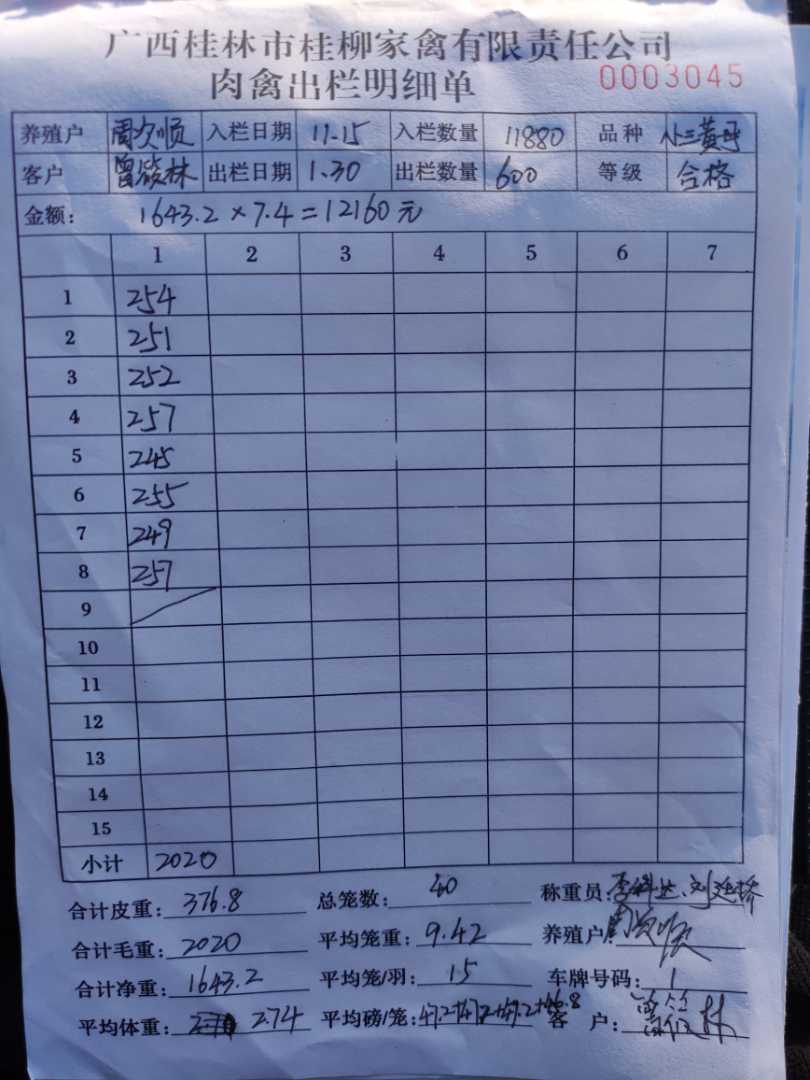 广西桂林市桂柳家禽有限责任公司
肉禽出栏明细单 0003045
养殖户 周次顺 入栏日期 11-15 入栏数量 11880 品种 小三黄
客户 曾 林 出栏日期 1.30 出栏数量 600 等级 合格
金额: 1643.2×7.4=12160元
1 2 3 4 5 6 7
1 254
2 251
3 252
4 257
5 245
6 255
7 249
8 257
9
10
11
12
13
14
15
小计 2020
合计皮重: 376.8 总笼数: 40 称重员: 李科 、刘廷
合计毛重: 2020 平均笼重: 9.42 养殖户 周
合计净重: 1643.2 平均笼/羽: 15 车牌号码: 1
平均体重: 2.74 平均磅/笼: 47.2+47.2+47.2+46.8 客 户: 林